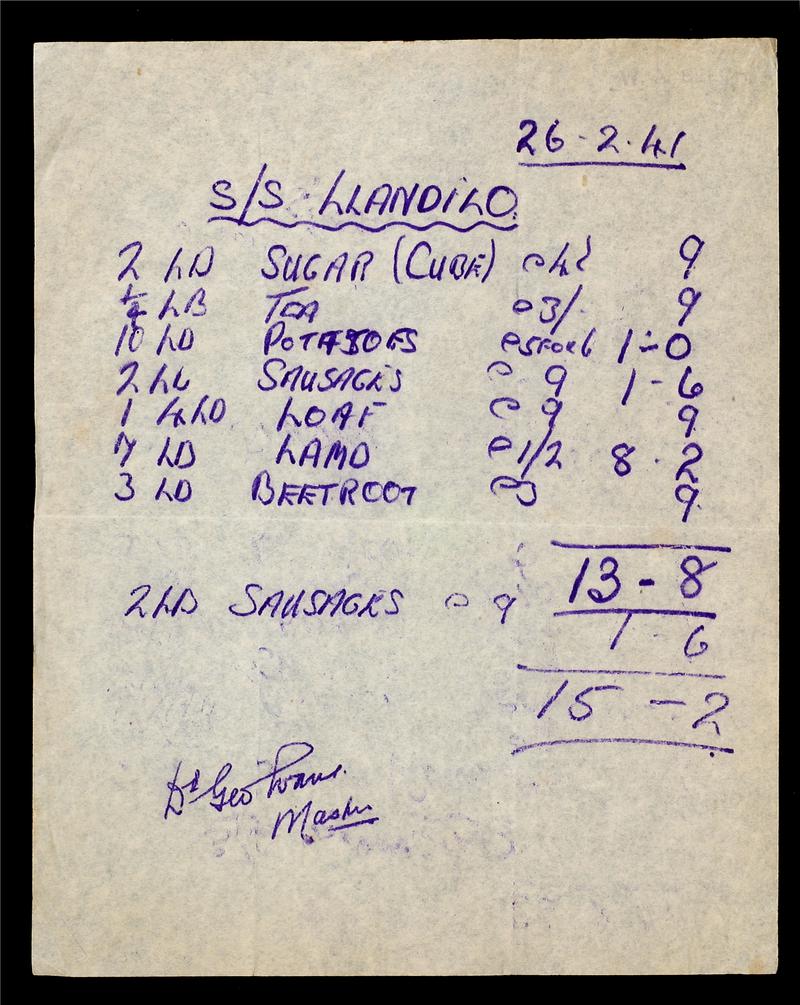 26-2-41
S/S LLANDILO
2 LB SUGAR (CUBE) @ 4½ 9
¼ LB TEA @ 3/- 9
10 LB POTATOES @ 5 FOR 6 1-0
2 LB SAUSAGES @ 9 1-6
1 4LB LOAF @ 9 9
7 LB LAMB @ 1/2 8-2
3 LB BEETROOT @ 3 9
13-8
2 LB SAUSAGES @ 9 1-6
15-2
Geo Evans
Master